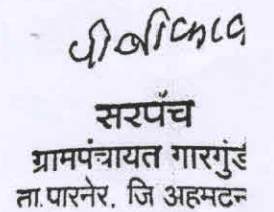 सरपंच
ग्रामपंचायत गारगुंड
ता.पारनेर, जि अहमटन